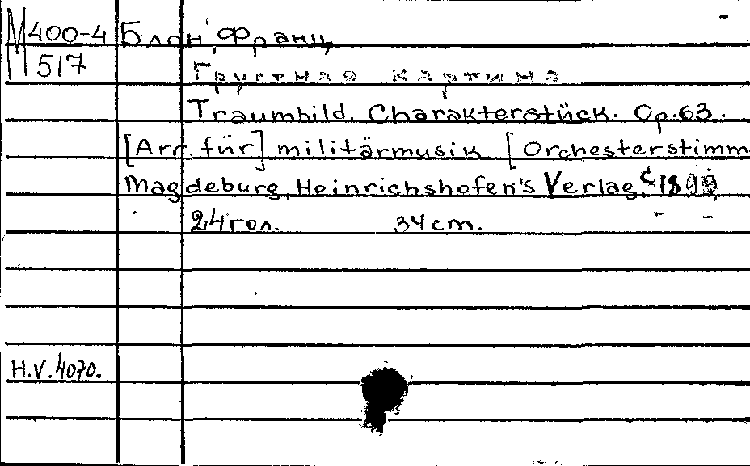 М400-4 Блон, Франц
517
Грустная картина
Traumbild. Charakterstück. Op.63.
[Arr. für] militärmusik [Orchesterstimm
Magdeburg, Heinrichshofen's Verlag, c 1899
24 гол. 34 cm.
H.V. 4070.